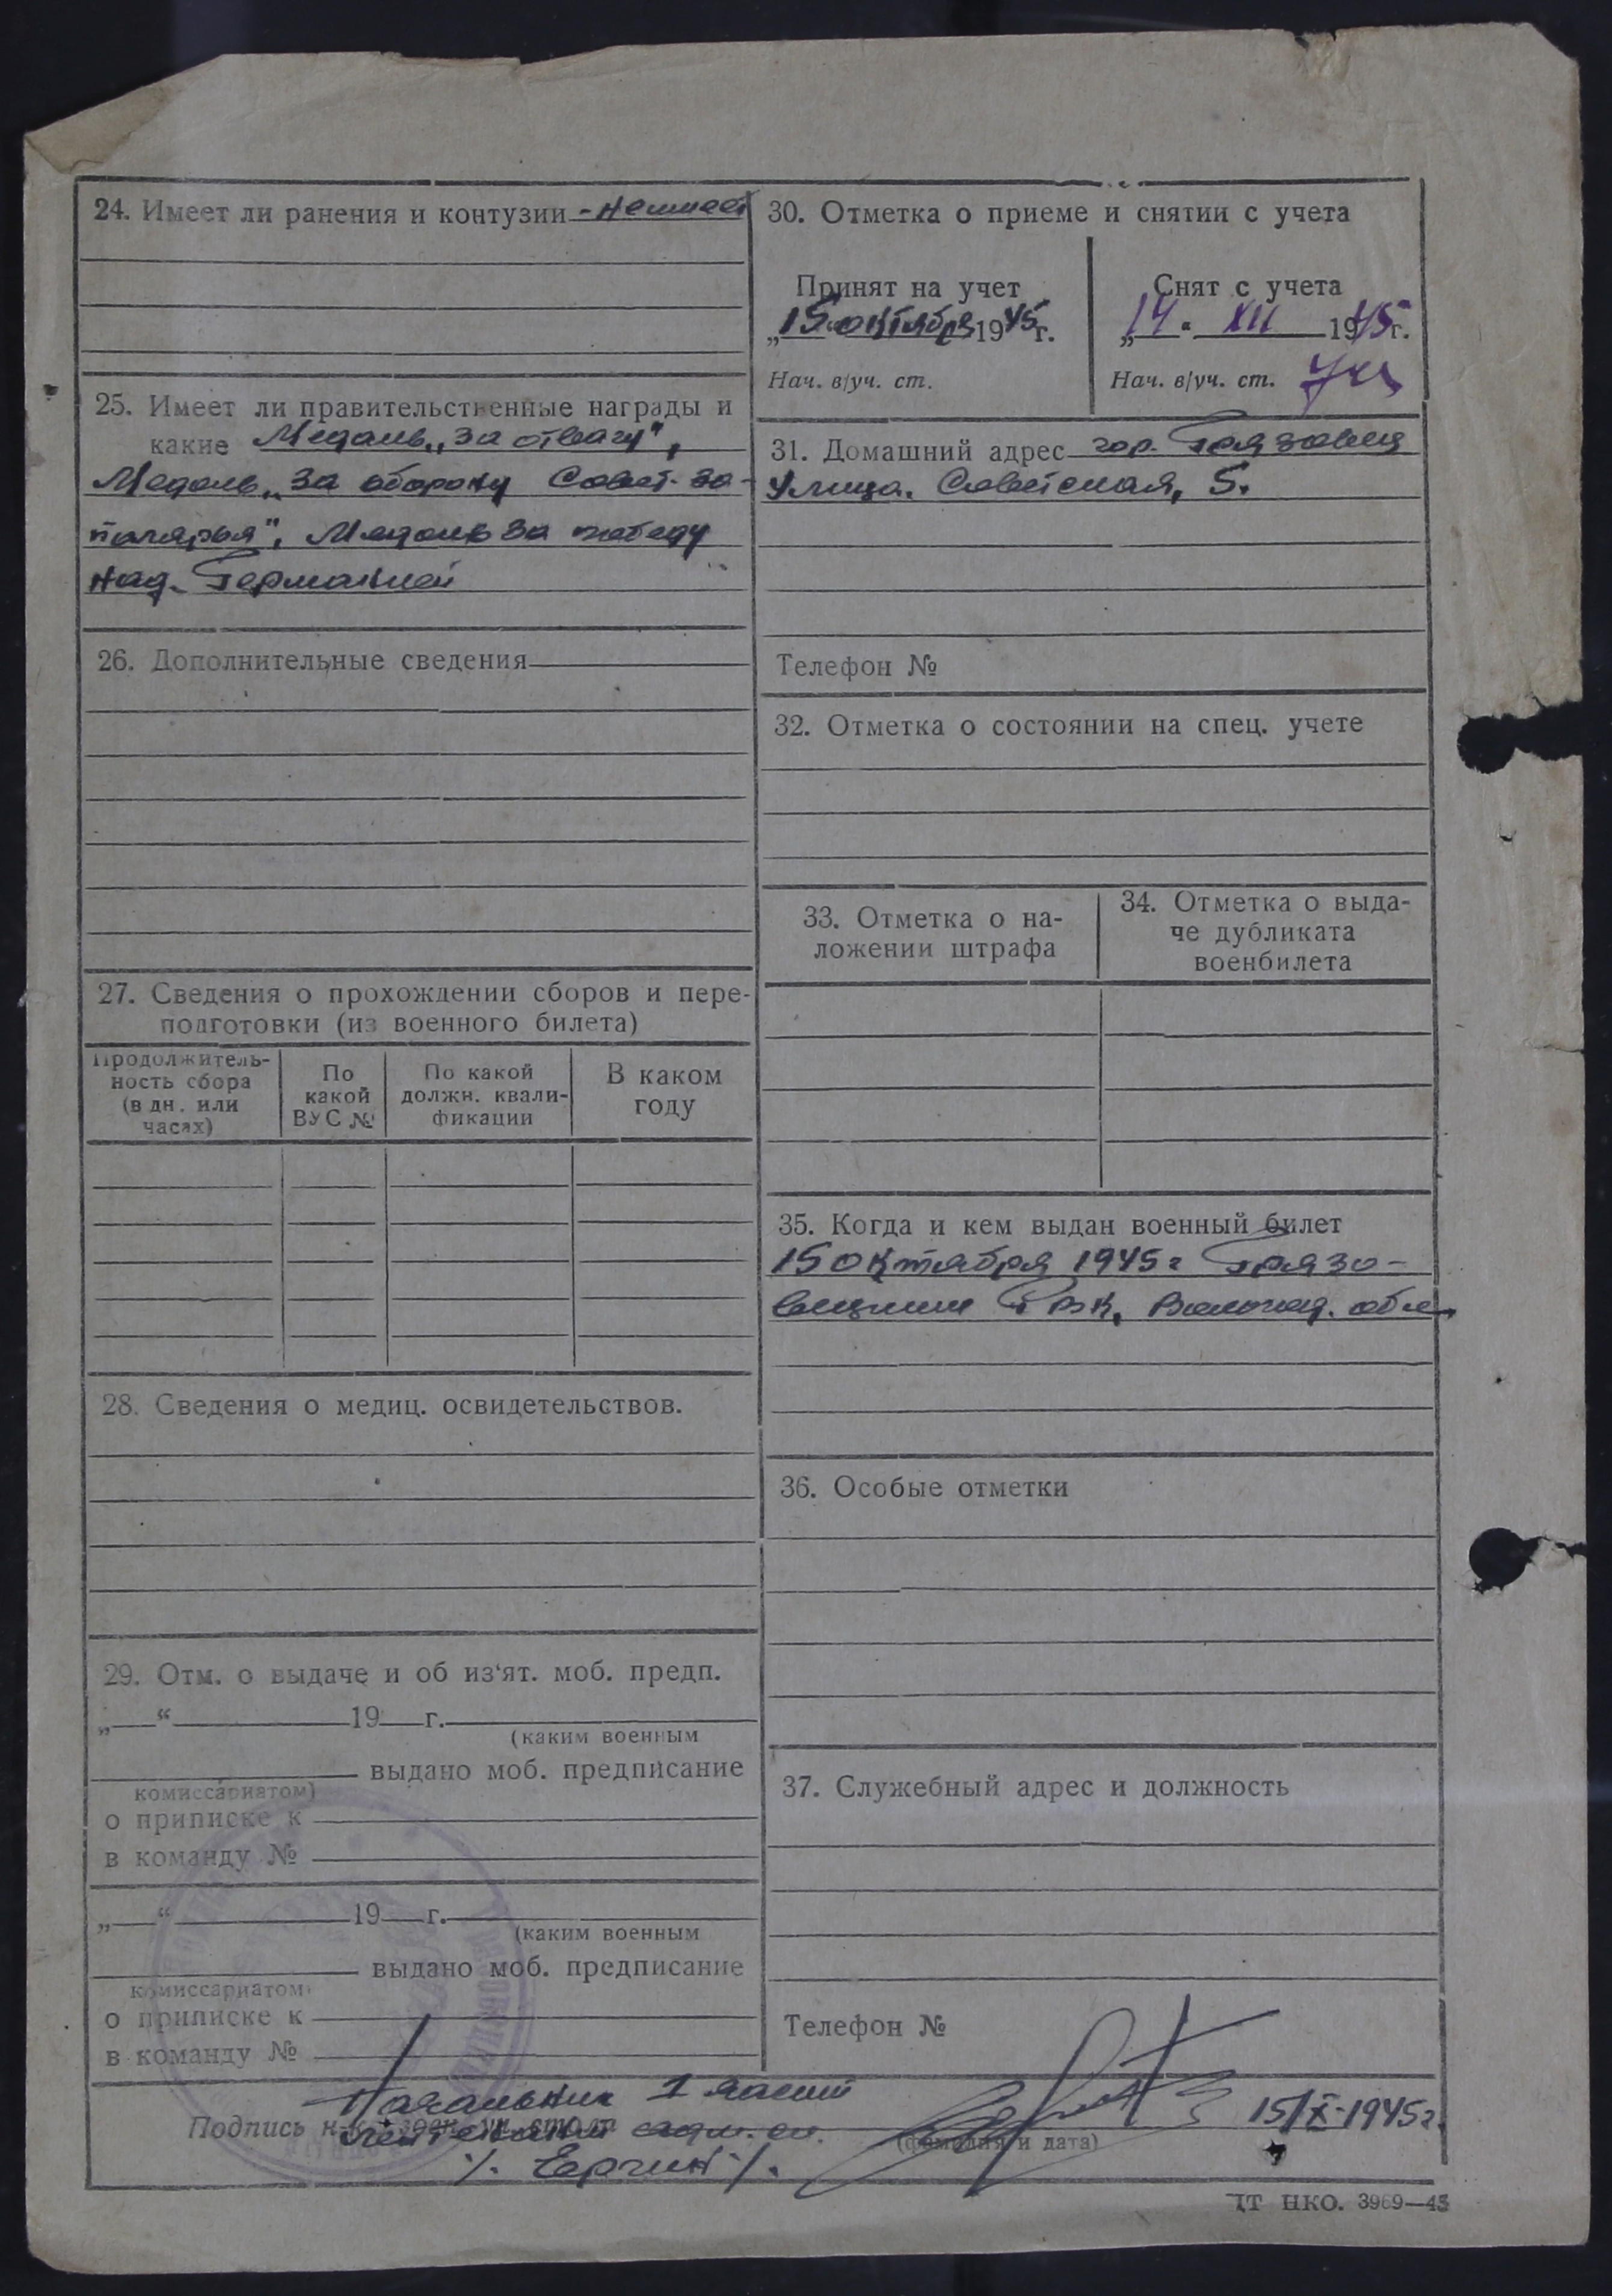 24. Имеет ли ранения и контузии - не имеет
25. Имеет ли правительственные награды и
какие Медаль „За отвагу",
Медаль „За оборону Совет. За-
полярья", Медаль За победу
над Германией
26. Дополнительные сведения
27. Сведения о прохождении сборов и пере-
подготовки (из военного билета)
Продолжитель-
ность сбора
(в дн. или
часах)
По
какой
ВУС №
По какой
должн. квали-
фикации
В каком
году
28. Сведения о медиц. освидетельствов.
29. Отм. о выдаче и об из‘ят. моб. предп.
„ “ 19 г.
(каким военным
выдано моб. предписание
комиссариатом)
о приписке к
в команду №
„ “ 19 г.
(каким военным
выдано моб. предписание
комиссариатом)
о приписке к
в команду №
30. Отметка о приеме и снятии с учета
Принят на учет
„15“ октября 1945 г.
Нач. в/уч. ст.
Снят с учета
„14“ XII 1945 г.
Нач. в/уч. ст.
31. Домашний адрес гор. Грязовец
Улица. Советская, 5.
Телефон №
32. Отметка о состоянии на спец. учете
33. Отметка о на-
ложении штрафа
34. Отметка о выда-
че дубликата
военбилета
35. Когда и кем выдан военный билет
15 октября 1945 г Грязо-
вецким РВК, Вологод. обл.
36. Особые отметки
37. Служебный адрес и должность
Телефон №
Начальник 1 части
Подпись
лейтенант адм. сл.
(фамилия и дата)
15/X-1945г.
/. Ергин /.
ІТ НКО. 3969—45